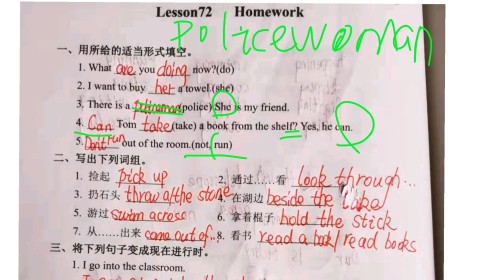 Lesson72 Homework
Policewoman
一、用所给的适当形式填空。
1. What are you doing now?(do)
2. I want to buy her a towel.(she)
3. There is a policeman(police). She is my friend.
4. Can Tom take(take) a book from the shelf? Yes, he can.
5. Don't run out of the room.(not, run)
二、写出下列词组。
1. 捡起 pick up 2. 通过……看 look through...
3. 扔石头 throw the stone 4. 在湖边 beside the lake
5. 游过 swim across 6. 拿着棍子 hold the stick
7. 从……出来 come out of.. 8. 看书 read a book/read books
三、将下列句子变成现在进行时。
1. I go into the classroom.